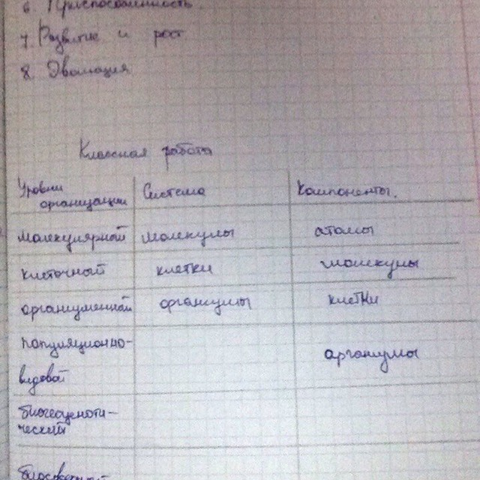 6. Приспособленность.
7. Развитие и рост
8. Эволюция
Классная работа
Уровни организации Система Компоненты.
молекулярный молекулы атомы
клеточный клетки молекулы
организменный организмы клетки
популяционно-
видовой организмы
биогеоценоти-
ческий
биосферный